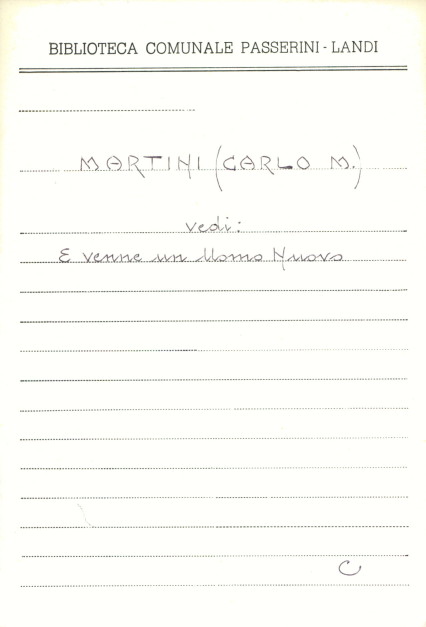 BIBLIOTECA COMUNALE PASSERINI - LANDI
MARTINI (CARLO M.)
vedi:
E venne un Uomo Nuovo
C